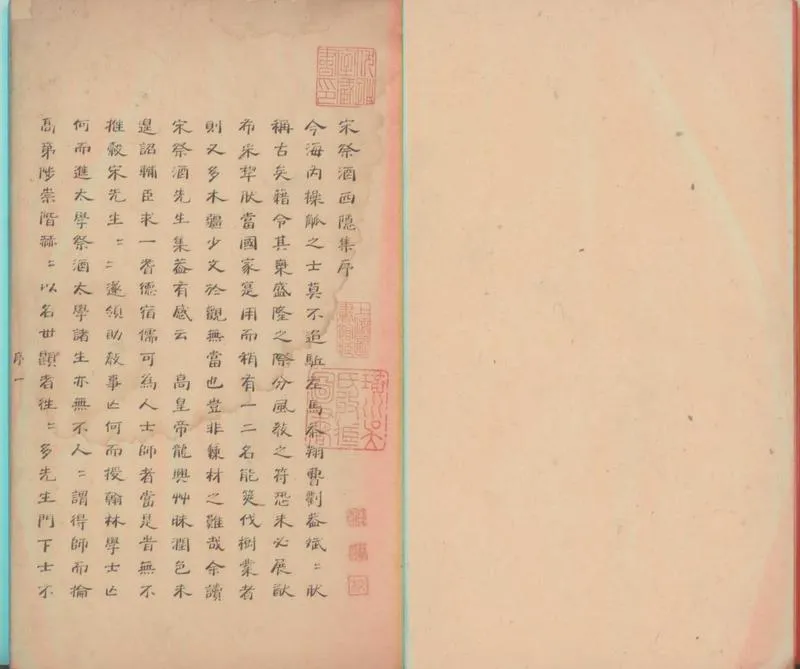 宋祭酒西隱集序
今海內操觚之士莫不追駈左馬參翔曹劉葢斌〻肰
稱古矣藉令其棄盛隆之際分風敎之符恐未必展猷
布采犂肰當國家寔用而稍有一二名能筴伐樹業者
則又多木疆少文於觀無當也豈非鍊材之難哉余讀
宋祭酒先生集葢有感云　高皇帝龍興艸昧潤色未
遑詔輔臣求一耆德宿儒可為人士師者當是旹無不
推轂宋先生〻〻遂領助敎事亾何而授翰林學士亾
何而進太學祭酒太學諸生亦無不人〻謂得師而掄
高第陟崇階赫〻以名世顯者徃〻多先生門下士不
序一